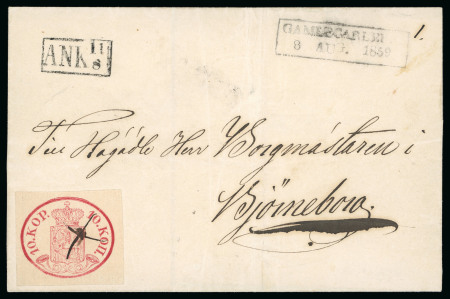 ANK 11/8
GAMLACARLEBY
8 AUG. 1859
1.
Till Högädle Herr Borgmästaren i
Björneborg.
10.KOP. 10.КОП.